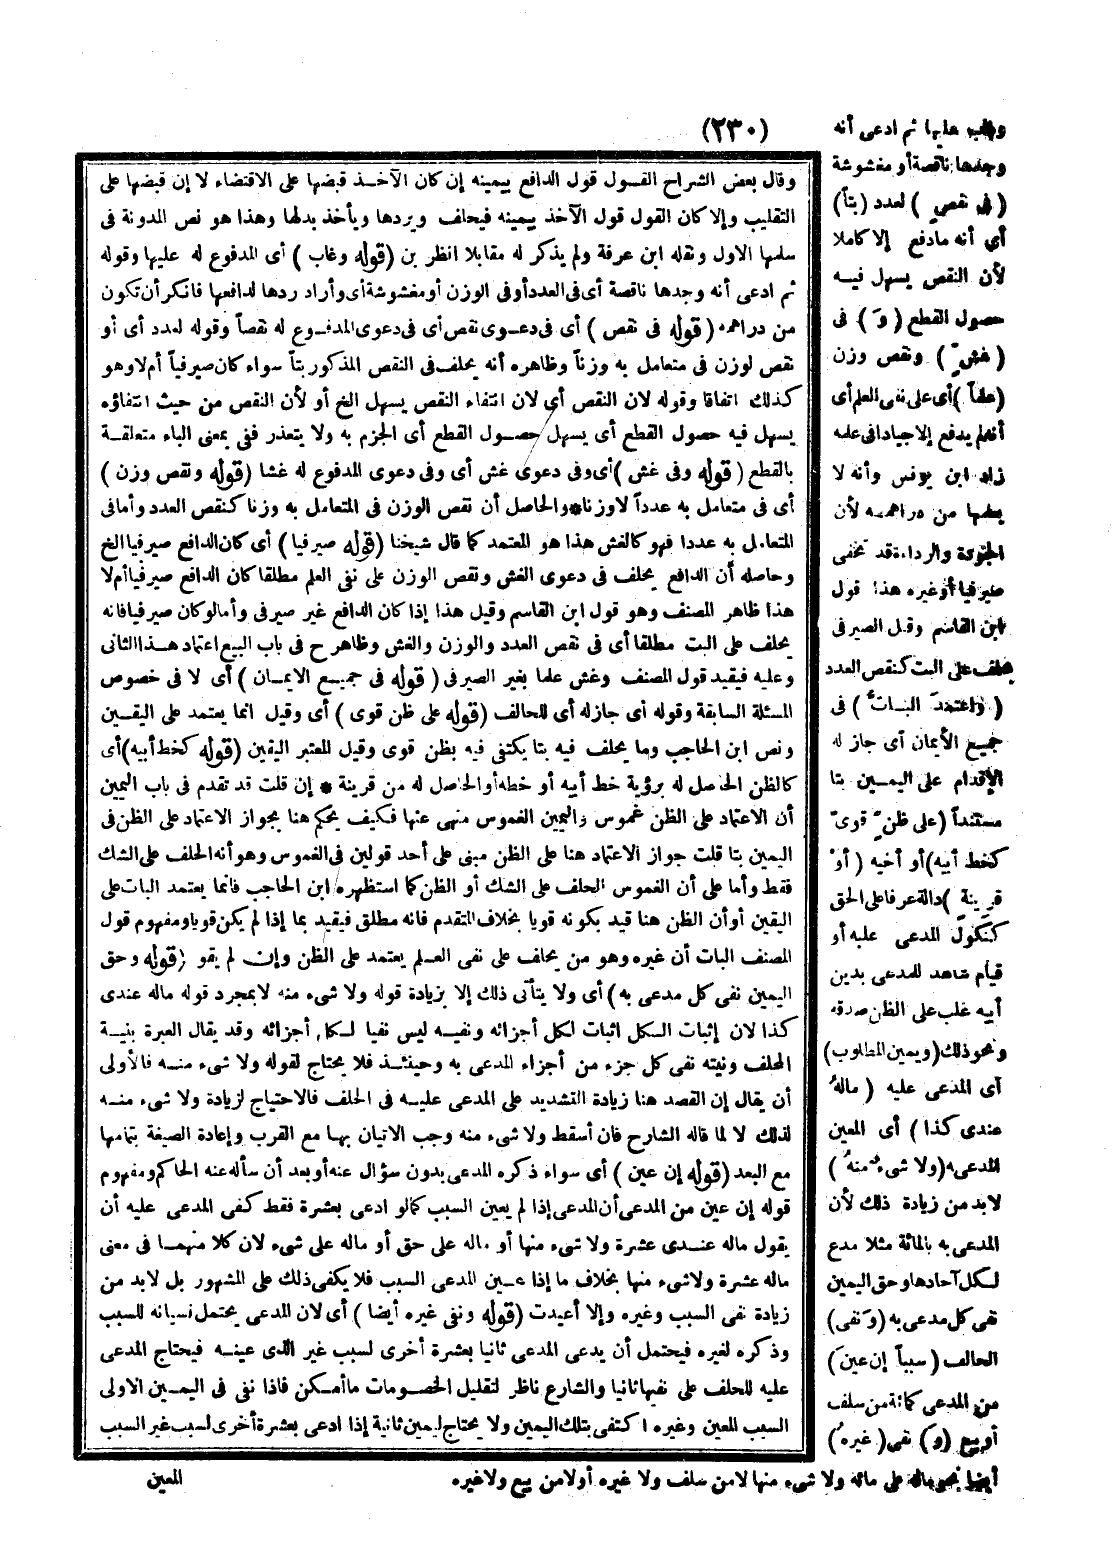 (٢٣٠)
وقلب عليها ثم ادعى أنه
وجدها ناقصة أو مغشوشة
(فى نقص) لعدد (بتاً)
أى أنه ما دفع إلا كاملا
لأن النقص يسهل فيه
حصول القطع (وَ) فى
(غشٍّ) ونقص وزن
(علماً) أى على نفى العلم أى
أنه لم يدفع إلا جيادا فى علمه
زاد ابن يونس وأنه لا
يعلمها من دراهمه لأن
الجودة والرداءة قد تخفى
صيرفيا أو غيره هذا قول
ابن القاسم وقيل الصيرفى
يحلف على البت كنقص العدد
(واعتمدَ الباتُّ) فى
جميع الأيمان أى جاز له
الإقدام على اليمين بتا
مستنداً (على ظنٍّ قوىٍّ
كخط أبيه) أو أخيه (أو
قرينة) دالة عرفا على الحق
كنكول المدعى عليه أو
قيام شاهد للمدعى بدين
أبيه غلب على الظن صدقه
ونحو ذلك (ويمين المطلوب)
أى المدعى عليه (مالهُ
عندى كذا) أى المعين
المدعى به (ولا شىء منهُ)
لا بد من زيادة ذلك لأن
المدعى به بالمائة مثلا مدع
لكل آحادها وحق اليمين
نفى كل مدعى به (وَنفى)
الحالف (سبباً إن عين)
من المدعى كمائة من سلف
أو بيع (وَ) نفى (غيرهُ)
أيضا نحو ماله على مائة ولا شىء منها لا من سلف ولا غيره أو لا من بيع ولا غيره
وقال بعض الشراح القول قول الدافع بيمينه إن كان الآخذ قبضها على الاقتضاء لا إن قبضها على
التقليب وإلا كان القول قول الآخذ بيمينه فيحلف ويردها ويأخذ بدلها وهذا هو نص المدونة فى
سلمها الاول ونقله ابن عرفة ولم يذكر له مقابلا انظر بن (قوله وغاب) أى المدفوع له عليها وقوله
ثم ادعى أنه وجدها ناقصة أى فى العدد أو فى الوزن أو مغشوشة أى وأراد ردها لدافعها فانكر أن تكون
من دراهمه (قوله فى نقص) أى فى دعوى نقص أى فى دعوى المدفوع له نقصاً وقوله لعدد أى أو
نقص لوزن فى متعامل به وزناً وظاهره أنه يحلف فى النقص المذكور بتاً سواء كان صيرفياً أم لا وهو
كذلك اتفاقا وقوله لان النقص أى لان انتفاء النقص يسهل الخ أو لأن النقص من حيث انتفاؤه
يسهل فيه حصول القطع أى يسهل حصول القطع أى الجزم به ولا يتعذر ففى بمعنى الباء متعلقة
بالقطع (قوله وفى غش) أى وفى دعوى غش أى وفى دعوى المدفوع له غشا (قوله ونقص وزن)
أى فى متعامل به عدداً لا وزنا * والحاصل أن نقص الوزن فى المتعامل به وزنا كنقص العدد وأما فى
المتعامل به عددا فهو كالغش هذا هو المعتمد كما قال شيخنا (قوله صيرفيا) أى كان الدافع صيرفيا الخ
وحاصله أن الدافع يحلف فى دعوى الغش ونقص الوزن على نفى العلم مطلقا كان الدافع صيرفيا أم لا
هذا ظاهر المصنف وهو قول ابن القاسم وقيل هذا إذا كان الدافع غير صيرفى وأما لو كان صيرفيا فانه
يحلف على البت مطلقا أى فى نقص العدد والوزن والغش وظاهر ح فى باب البيع اعتماد هذا الثانى
وعليه فيقيد قول المصنف وغش علما بغير الصيرفى (قوله فى جميع الايمان) أى لا فى خصوص
المسئلة السابقة وقوله أى جاز له أى للحالف (قوله على ظن قوى) أى وقيل انما يعتمد على اليقين
ونص ابن الحاجب وما يحلف فيه بتا يكتفى فيه بظن قوى وقيل المعتبر اليقين (قوله كخط أبيه) أى
كالظن الحاصل له برؤية خط أبيه أو خطه أو الحاصل له من قرينة * إن قلت قد تقدم فى باب اليمين
أن الاعتماد على الظن غموس واليمين الغموس منهى عنها فكيف يحكم هنا بجواز الاعتماد على الظن فى
اليمين بتا قلت جواز الاعتماد هنا على الظن مبنى على أحد قولين فى الغموس وهو أنه الحلف على الشك
فقط وأما على أن الغموس الحلف على الشك أو الظن كما استظهره ابن الحاجب فانما يعتمد البات على
اليقين أو أن الظن هنا قيد بكونه قويا بخلاف المتقدم فانه مطلق فيقيد بما إذا لم يكن قويا ومفهوم قول
المصنف البات أن غيره وهو من يحلف على نفى العلم يعتمد على الظن وإن لم يقو (قوله وحق
اليمين نفى كل مدعى به) أى ولا يتأتى ذلك إلا بزيادة قوله ولا شىء منه لا بمجرد قوله ماله عندى
كذا لان إثبات الكل اثبات لكل أجزائه ونفيه ليس نفيا لكل أجزائه وقد يقال العبرة بنية
المحلف ونيته نفى كل جزء من أجزاء المدعى به وحينئذ فلا يحتاج لقوله ولا شىء منه فالأولى
أن يقال إن القصد هنا زيادة التشديد على المدعى عليه فى الحلف فالاحتياج لزيادة ولا شىء منه
لذلك لا لما قاله الشارح فان أسقط ولا شىء منه وجب الاتيان بها مع القرب وإعادة الصيغة بتمامها
مع البعد (قوله إن عين) أى سواء ذكره المدعى بدون سؤال عنه أو بعد أن سأله عنه الحاكم ومفهوم
قوله إن عين من المدعى أن المدعى إذا لم يعين السبب كما لو ادعى بعشرة فقط كفى المدعى عليه أن
يقول ماله عندى عشرة ولا شىء منها أو ماله على حق أو ماله على شىء لان كلا منهما فى معنى
ماله عشرة ولا شىء منها بخلاف ما إذا عين المدعى السبب فلا يكفى ذلك على المشهور بل لابد من
زيادة نفى السبب وغيره وإلا أعيدت (قوله ونفى غيره أيضا) أى لان المدعى يحتمل نسيانه للسبب
وذكره لغيره فيحتمل أن يدعى المدعى ثانيا بعشرة أخرى لسبب غير الذى عينه فيحتاج المدعى
عليه للحلف على نفيها ثانيا والشارع ناظر لتقليل الخصومات ما أمكن فاذا نفى فى اليمين الاولى
السبب المعين وغيره اكتفى بتلك اليمين ولا يحتاج ليمين ثانية إذا ادعى بعشرة أخرى لسبب غير السبب
المعين